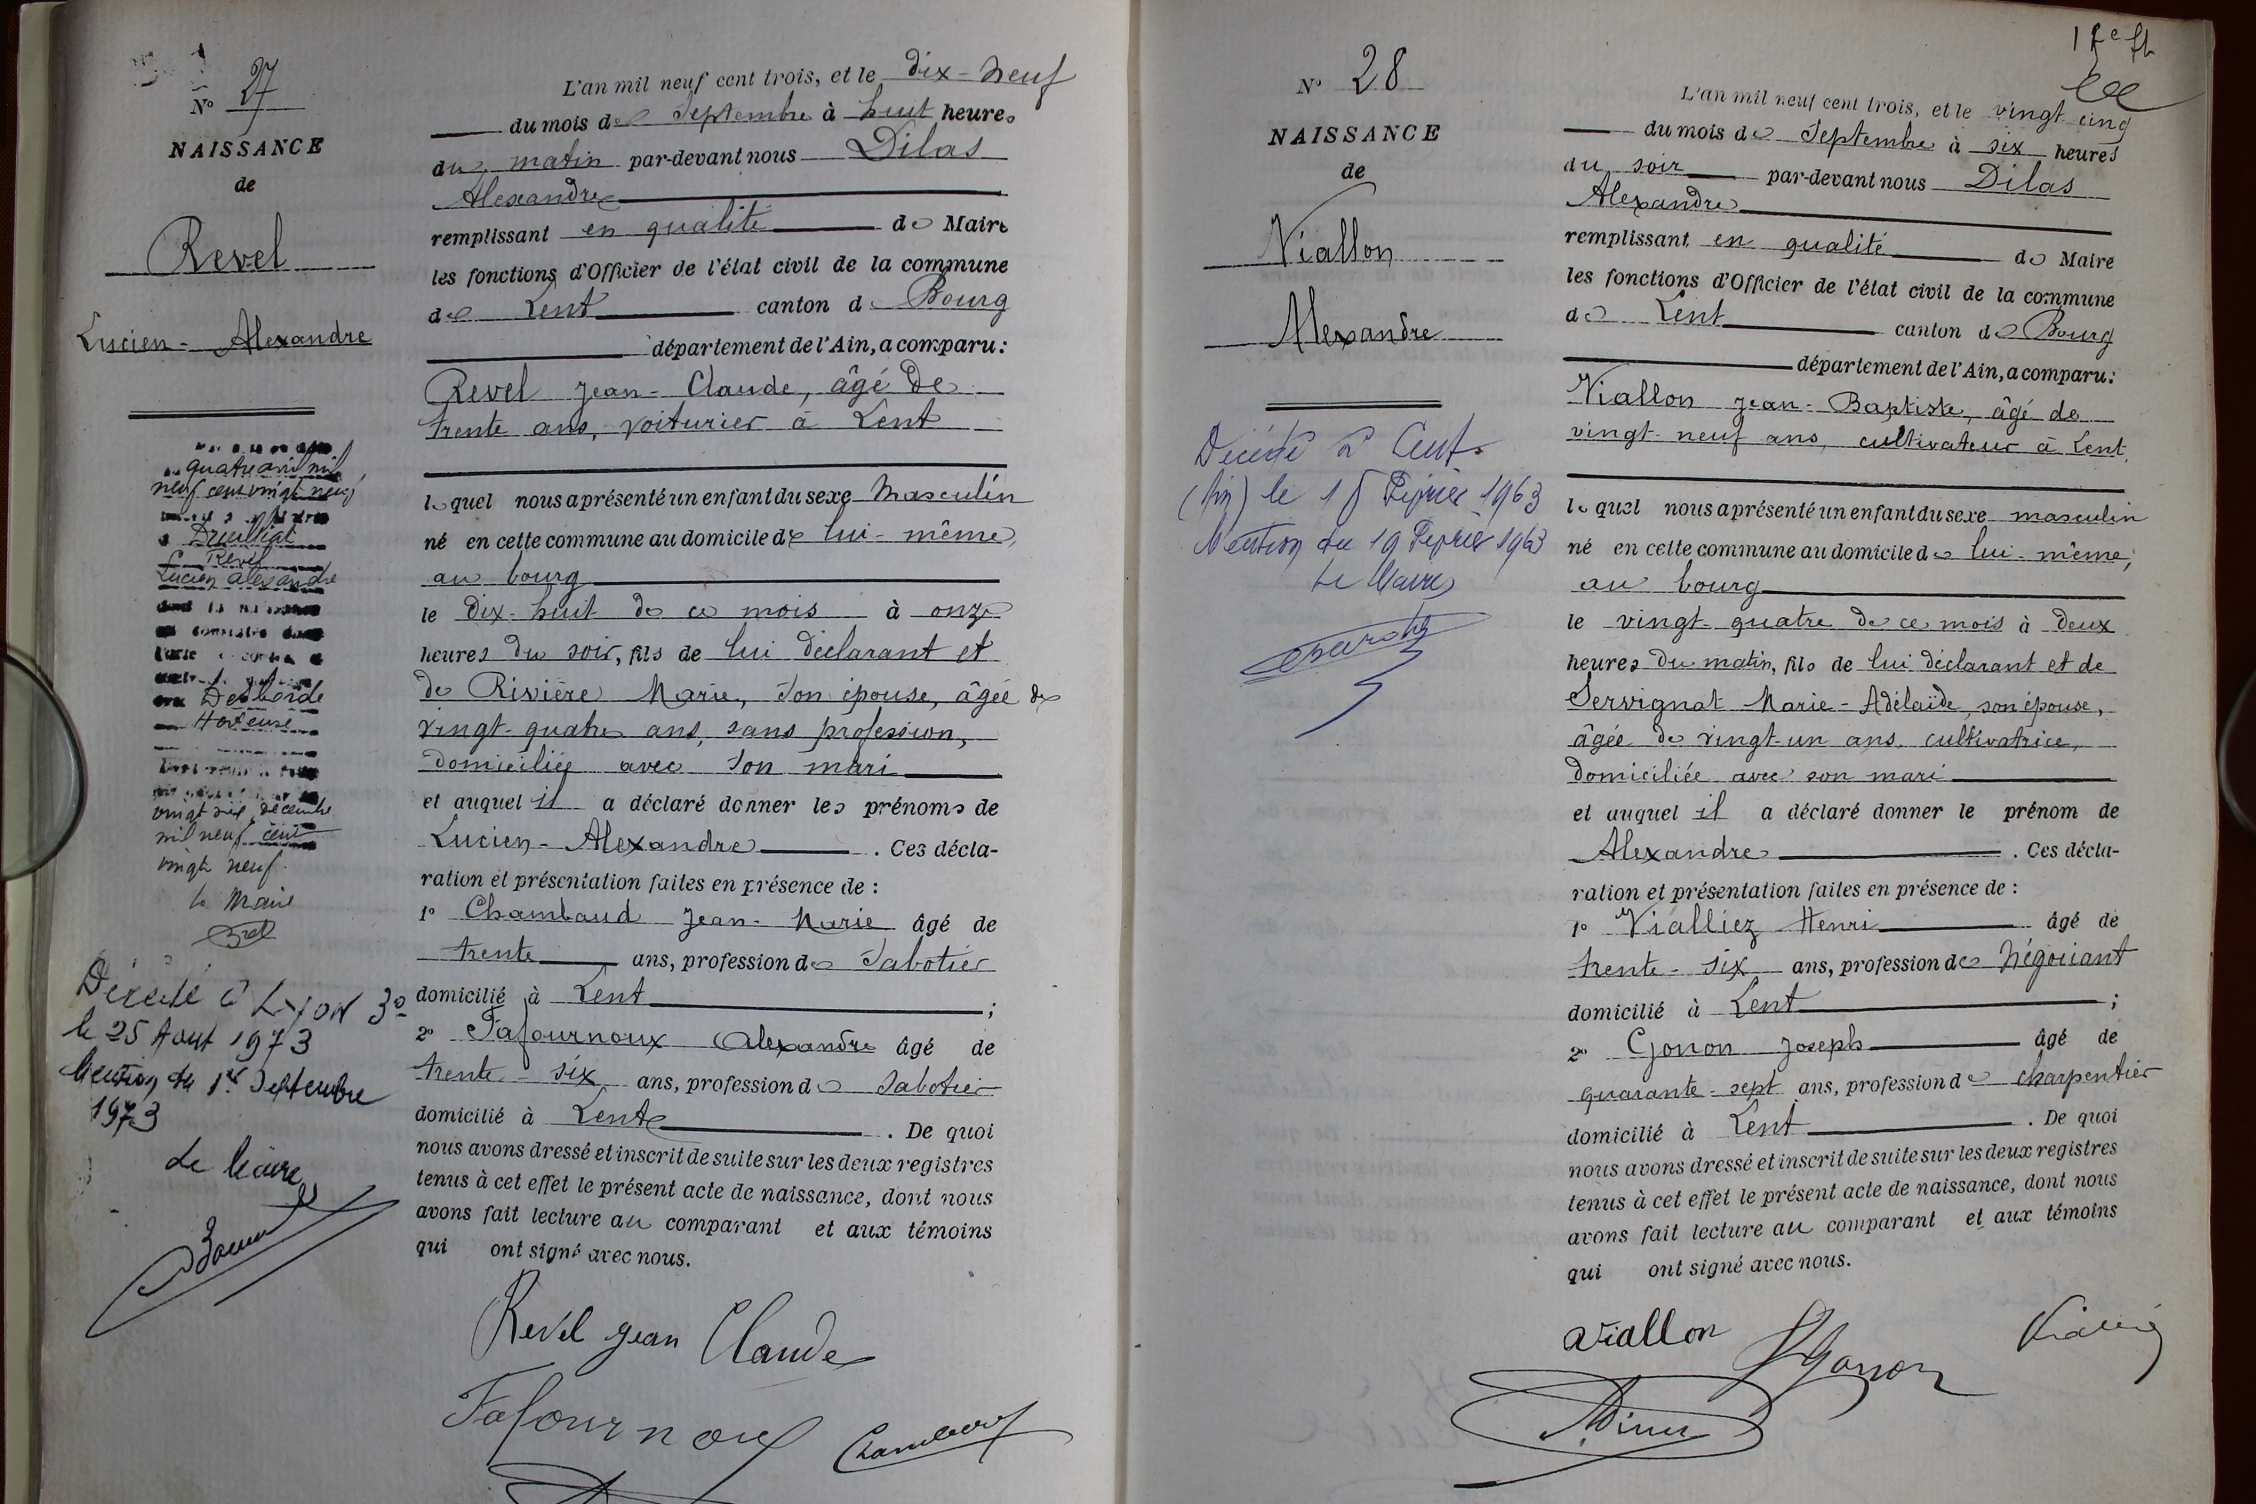 N° 27
NAISSANCE
de
Revel
Lucien - Alexandre
quatre avril mil
neuf cent vingt neuf
Druillat
Revel
Lucien alexandre
Desborde
Horteuse
vingt six décembre
mil neuf cent
vingt neuf
le Maire
Décédé à LYON 3e
le 25 Aout 1973
Mention du 1er Septembre
1973
Le Maire
L'an mil neuf cent trois, et le dix-neuf
du mois de Septembre à huit heures
du matin par-devant nous Dilas
Alexandre
remplissant en qualité de Maire
les fonctions d'Officier de l'état civil de la commune
de Lent canton de Bourg
département de l'Ain, a comparu :
Revel Jean-Claude, âgé de
trente ans, voiturier à Lent
lequel nous a présenté un enfant du sexe Masculin
né en cette commune au domicile de lui-même,
au bourg
le dix-huit de ce mois à onze
heures du soir, fils de lui déclarant et
de Rivière Marie, son épouse, âgée de
vingt-quatre ans, sans profession,
domiciliée avec son mari
et auquel il a déclaré donner les prénoms de
Lucien-Alexandre. Ces décla-
ration et présentation faites en présence de :
1° Chambaud Jean-Marie âgé de
trente ans, profession de Sabotier
domicilié à Lent ;
2° Tafournoux Alexandre âgé de
trente-six ans, profession de Sabotier
domicilié à Lent. De quoi
nous avons dressé et inscrit de suite sur les deux registres
tenus à cet effet le présent acte de naissance, dont nous
avons fait lecture au comparant et aux témoins
qui ont signé avec nous.
Revel Jean Claude
Tafournoux Chambaud
N° 28
NAISSANCE
de
Viallon
Alexandre
Décédé à Lent
(Ain) le 18 Février 1963
Mention du 19 Février 1963
Le Maire
L'an mil neuf cent trois, et le vingt cinq
du mois de Septembre à six heures
du soir par-devant nous Dilas
Alexandre
remplissant en qualité de Maire
les fonctions d'Officier de l'état civil de la commune
de Lent canton de Bourg
département de l'Ain, a comparu :
Viallon Jean-Baptiste, âgé de
vingt-neuf ans, cultivateur à Lent,
lequel nous a présenté un enfant du sexe masculin
né en cette commune au domicile de lui-même,
au bourg
le vingt-quatre de ce mois à deux
heures du matin, fils de lui déclarant et de
Servignat Marie-Adélaïde, son épouse,
âgée de vingt-un ans, cultivatrice,
domiciliée avec son mari
et auquel il a déclaré donner le prénom de
Alexandre. Ces décla-
ration et présentation faites en présence de :
1° Vialliez Henri âgé de
trente-six ans, profession de Négociant
domicilié à Lent ;
2° Gonon Joseph âgé de
quarante-sept ans, profession de charpentier
domicilié à Lent. De quoi
nous avons dressé et inscrit de suite sur les deux registres
tenus à cet effet le présent acte de naissance, dont nous
avons fait lecture au comparant et aux témoins
qui ont signé avec nous.
Viallon Gonon